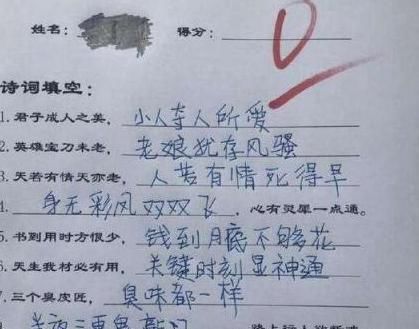 姓名： 得分： 0
诗词填空：
1. 君子成人之美，小人夺人所爱
2. 英雄宝刀未老，老娘犹存风骚
3. 天若有情天亦老，人若有情死得早
4. 身无彩风双双飞，心有灵犀一点通。
5. 书到用时方恨少，钱到月底不够花
6. 天生我材必有用，关键时刻显神通
7. 三个臭皮匠，臭味都一样
半夜三更鬼敲门